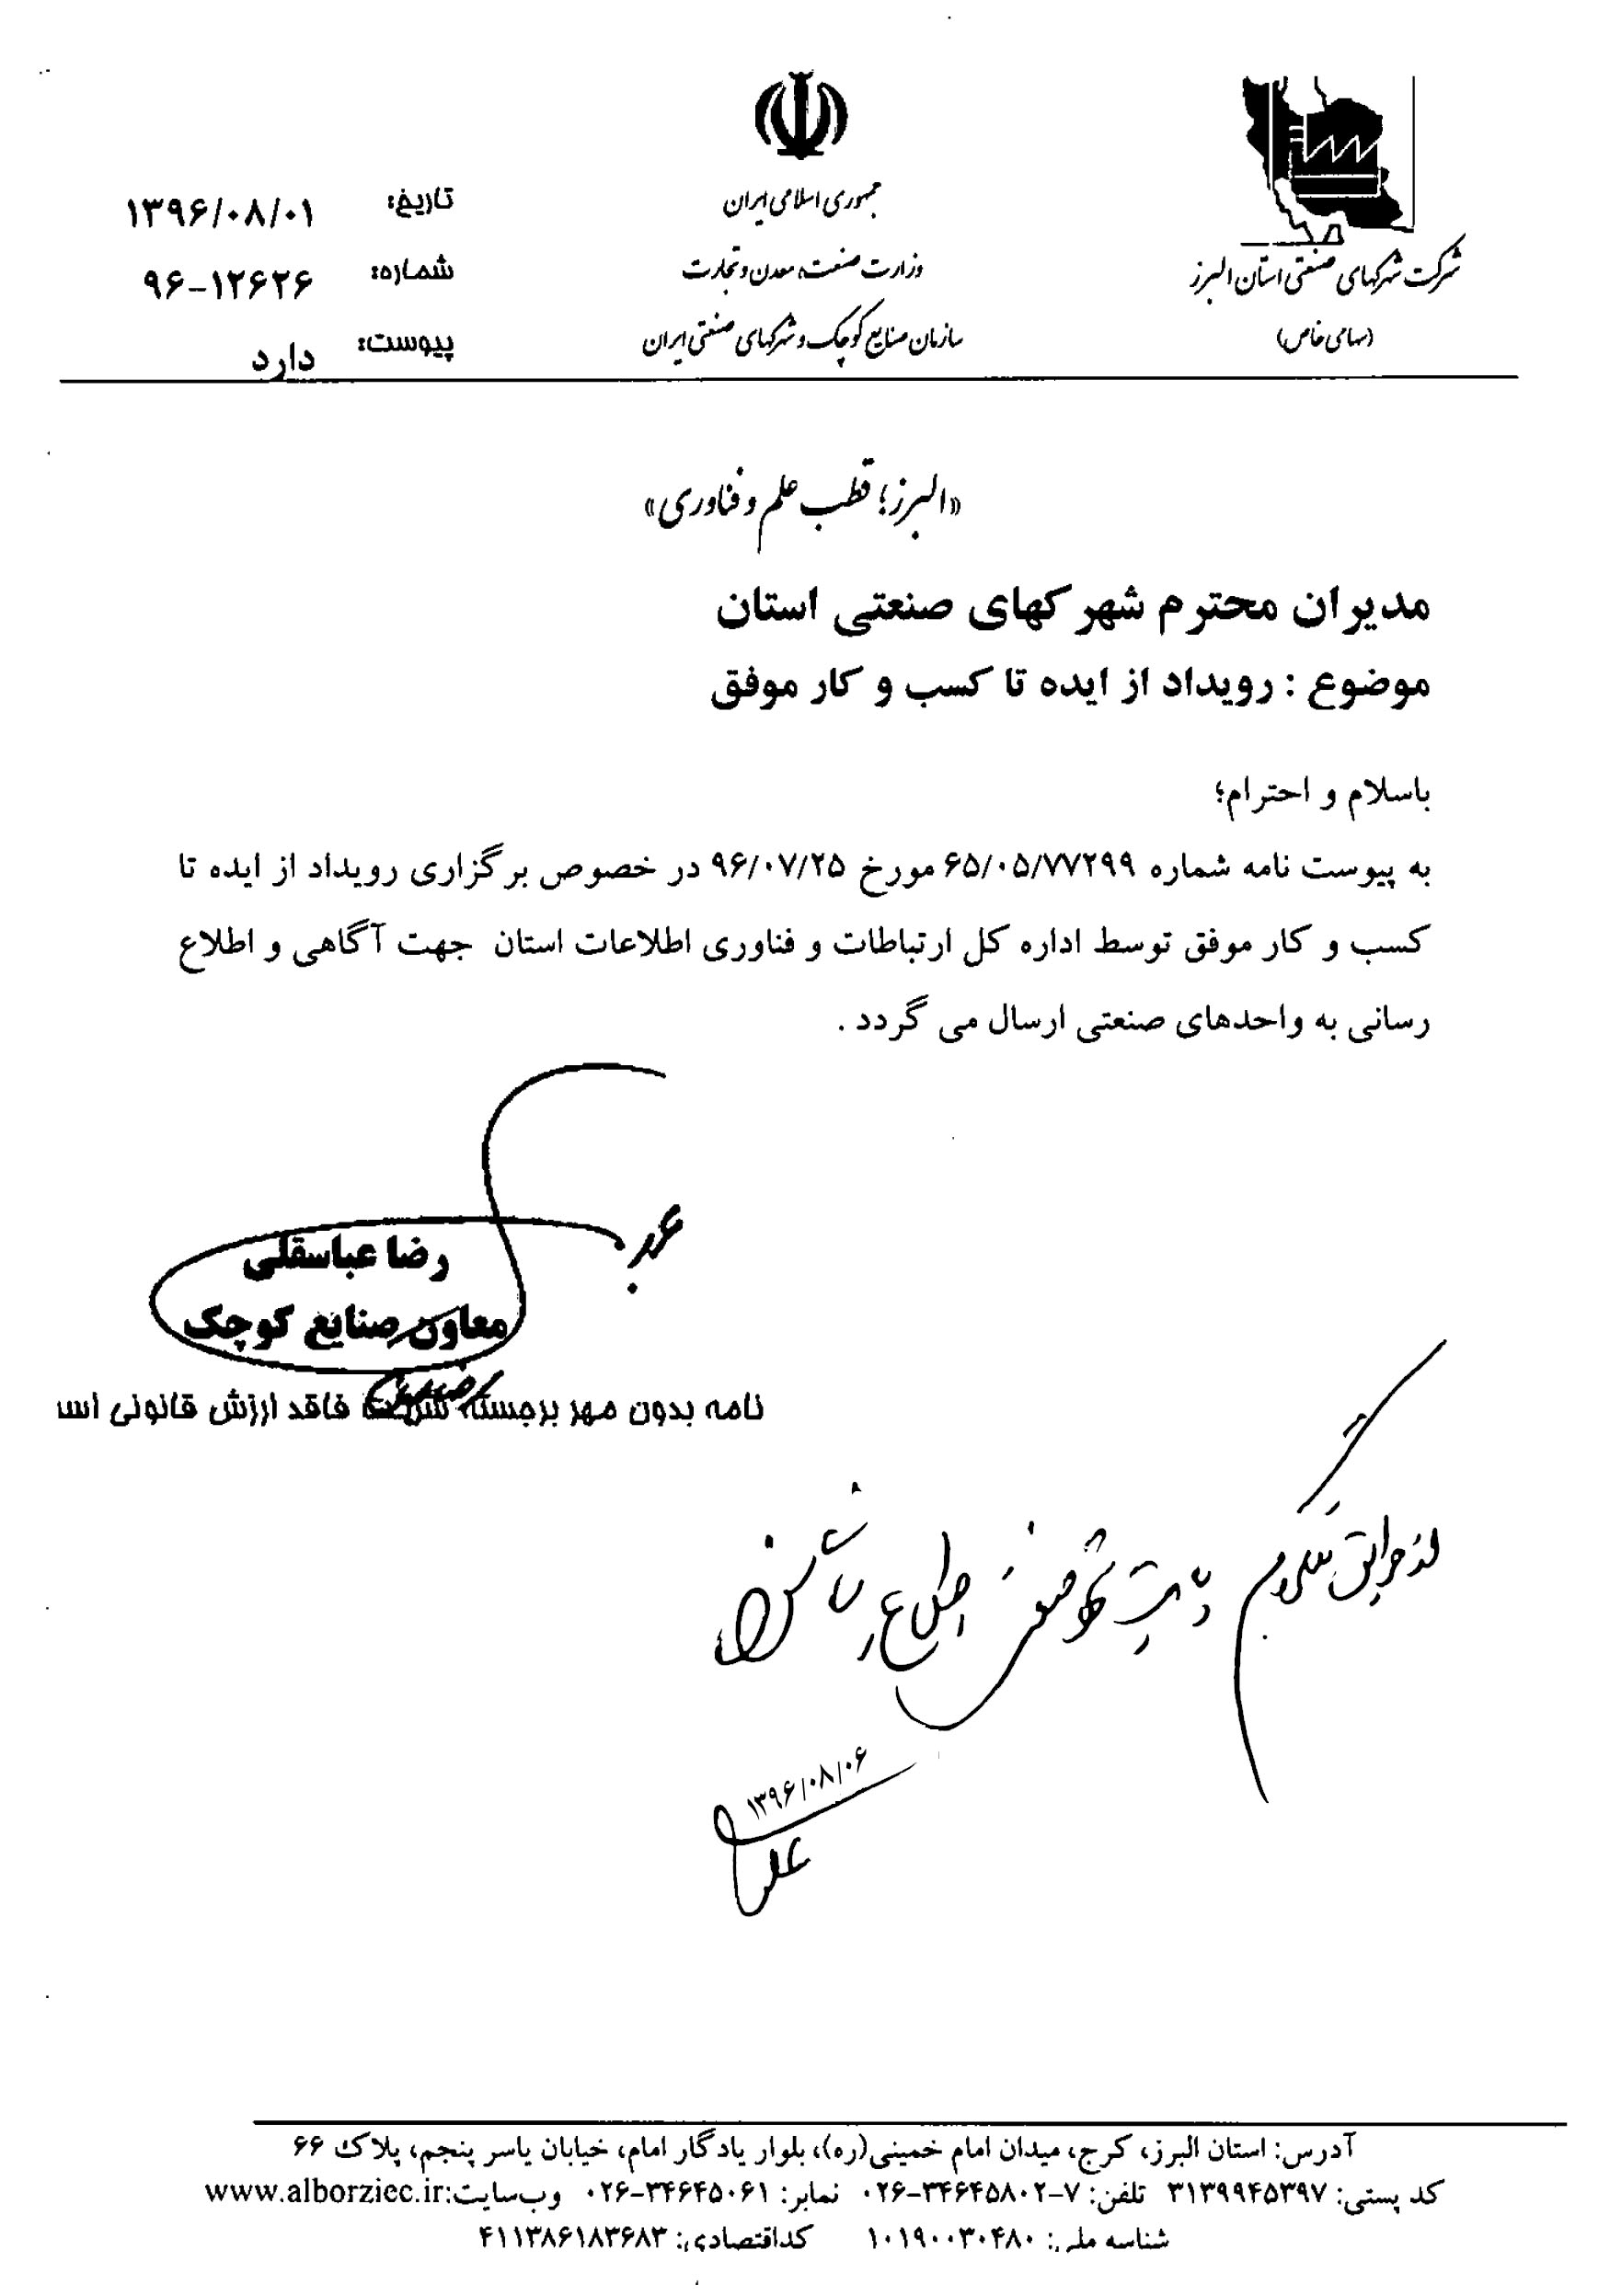 شرکت شهرکهای صنعتی استان البرز
(سهامی خاص)
جمهوری اسلامی ایران
وزارت صنعت، معدن و تجارت
سازمان صنایع کوچک و شهرکهای صنعتی ایران
تاریخ: ۱۳۹۶/۰۸/۰۱
شماره: ۹۶-۱۲۶۲۶
پیوست: دارد
«البرز؛ قطب علم و فناوری»
مدیران محترم شهرکهای صنعتی استان
موضوع : رویداد از ایده تا کسب و کار موفق
باسلام و احترام؛
به پیوست نامه شماره ۶۵/۰۵/۷۷۲۹۹ مورخ ۹۶/۰۷/۲۵ در خصوص برگزاری رویداد از ایده تا
کسب و کار موفق توسط اداره کل ارتباطات و فناوری اطلاعات استان جهت آگاهی و اطلاع
رسانی به واحدهای صنعتی ارسال می گردد .
رضا عباسقلی
معاون صنایع کوچک
نامه بدون مهر برجسته شرکت فاقد ارزش قانونی اس
اطلاع
۱۳۹۶/۰۸/۰۶
آدرس: استان البرز، کرج، میدان امام خمینی(ره)، بلوار یادگار امام، خیابان یاسر پنجم، پلاک ۶۶
کد پستی: ۳۱۳۹۹۴۵۳۹۷ تلفن: ۷-۰۲۶-۳۴۶۴۵۸۰۲ نمابر: ۰۲۶-۳۴۶۴۵۰۶۱ وب‌سایت:www.alborziec.ir
شناسه ملی: ۱۰۱۹۰۰۳۰۴۸۰ کداقتصادی: ۴۱۱۳۸۶۱۸۳۶۸۳